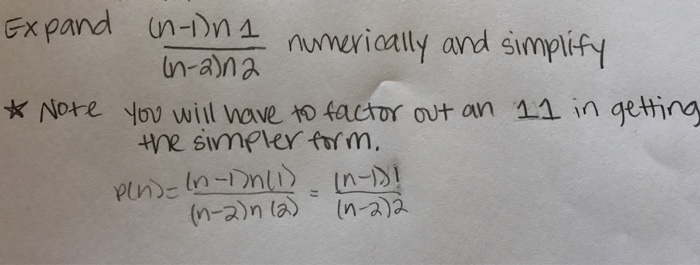 Expand (n-1)n1 / (n-2)n2 numerically and simplify
* Note you will have to factor out an 11 in getting
the simpler form.
P(n) = (n-1)n(1) / (n-2)n(2) = (n-1)1 / (n-2)2